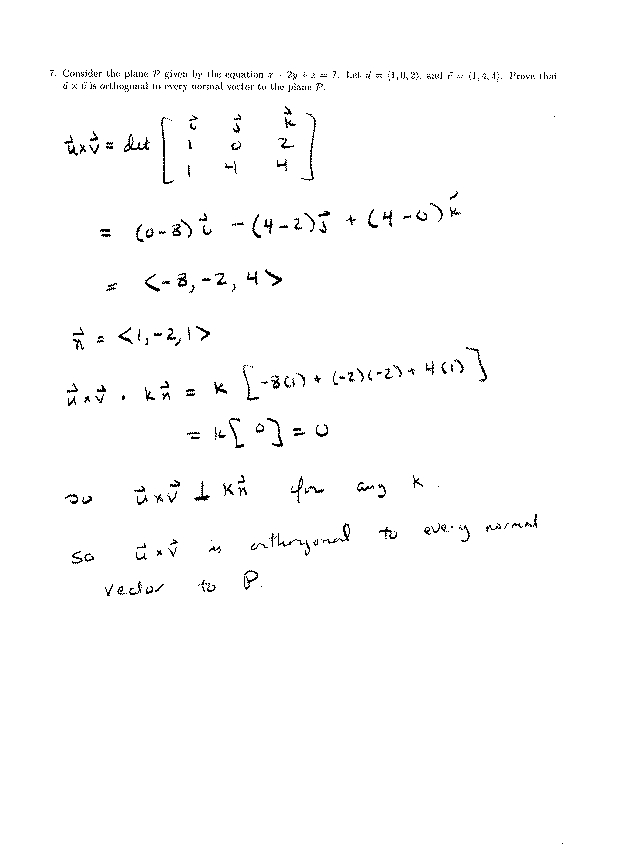 7. Consider the plane P given by the equation x - 2y + z = 7. Let u⃗ = ⟨1, 0, 2⟩, and v⃗ = ⟨1, 4, 4⟩. Prove that
u⃗ × v⃗ is orthogonal to every normal vector to the plane P.
u⃗×v⃗ = det [ i⃗ j⃗ k⃗
1 0 2
1 4 4 ]
= (0-8) i⃗ - (4-2) j⃗ + (4-0) k⃗
= <-8, -2, 4>
n⃗ = <1, -2, 1>
u⃗×v⃗ • kn⃗ = k [-8(1) + (-2)(-2) + 4(1)]
= k[0] = 0
so u⃗×v⃗ ⊥ kn⃗ for any k.
So u⃗×v⃗ is orthogonal to every normal
vector to P.